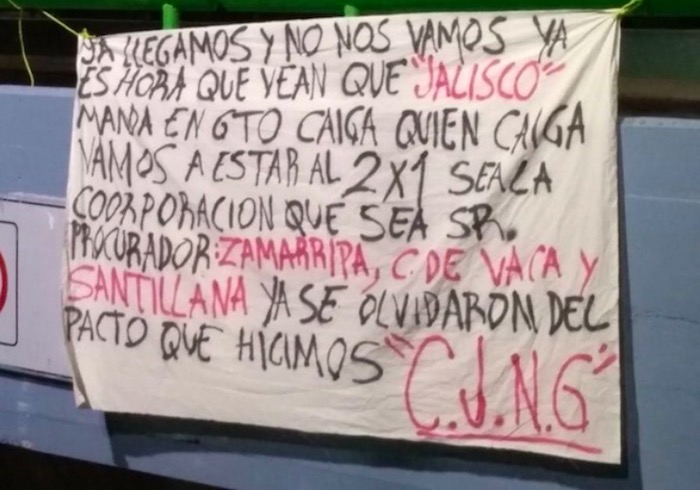 YA LLEGAMOS Y NO NOS VAMOS YA
ES HORA QUE VEAN QUE "JALISCO"
MANDA EN GTO CAIGA QUIEN CAIGA
VAMOS A ESTAR AL 2X1 SEALA
COORPORACION QUE SEA SR.
PROCURADOR: ZAMARRIPA, C. DE VACA Y
SANTILLANA YA SE OLVIDARON DEL
PACTO QUE HICIMOS "C.J.N.G"